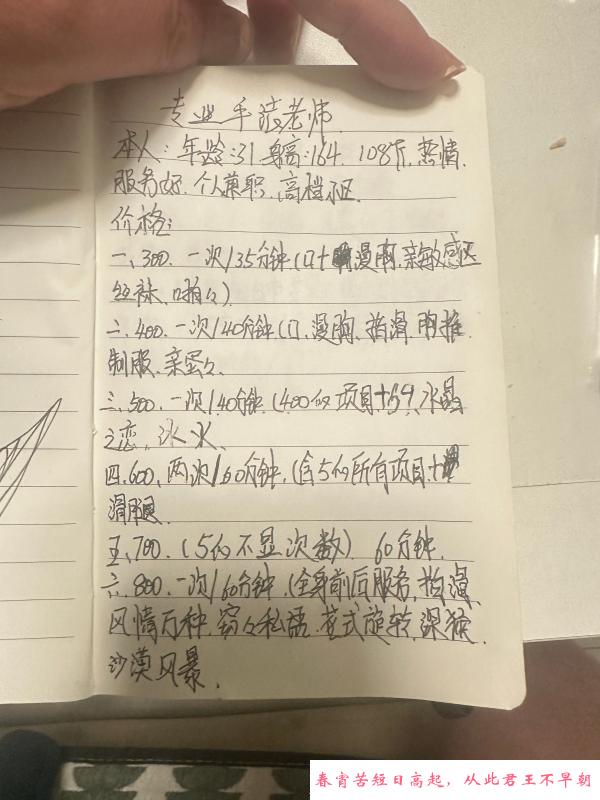 专业手法老师
本人：年龄：31 身高：164. 108斤, 热情.
服务好. 个人兼职, 高档小区.
价格：
一、300. 一次/35分钟 (口+漫胸, 亲敏感区
丝袜、啪々)
二、400. 一次/40分钟 (口、漫胸、指滑, 胸推
制服、亲蛋々.
三、500. 一次/40分钟 (400的项目+59, 水晶
之恋, 冰火、
四.600、两次/60分钟, (含5的所有项目+
滑腿.
五、700. (5的不显次数) 60分钟.
六、800. 一次/60分钟 (全身前后服务, 指滑
风情万种, 窃々私语, 花式旋转, 深猴.
沙漠风暴.
春宵苦短日高起，从此君王不早朝